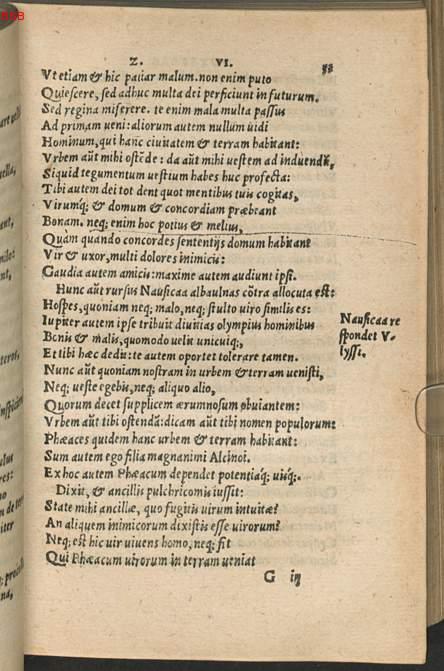 Z. VI.
Vt etiam & hic patiar malum. non enim puto
Quiescere, sed adhuc multa dei perficiunt in futurum.
Sed regina miserere. te enim mala multa passus
Ad primam ueni: aliorum autem nullum uidi
Hominum, qui hanc ciuitatem & terram habitant:
Vrbem aũt mihi ostẽde: da aũt mihi uestem ad induendũ,
Siquid tegumentum uestium habes huc profecta:
Tibi autem dei tot dent quot mentibus tuis cogitas,
Virumq; & domum & concordiam præbeant
Bonam. neq; enim hoc potius & melius,
Quàm quando concordes sententijs domum habitant
Vir & uxor, multi dolores inimicis:
Gaudia autem amicis: maxime autem audiunt ipsi.
Hunc aũt rursus Nausicaa albaulnas cõtra allocuta est:
Hospes, quoniam neq; malo, neq; stulto uiro similis es:
Iupiter autem ipse tribuit diuitias olympius hominibus
Bonis & malis, quomodo uelit unicuiq;,
Et tibi hæc dedit: te autem oportet tolerare tamen.
Nunc aũt quoniam nostram in urbem & terram uenisti,
Neq; ueste egebis, neq; aliquo alio,
Quorum decet supplicem ærumnosum obuiantem:
Vrbem aũt tibi ostendã: dicam aũt tibi nomen populorum:
Phæaces quidem hanc urbem & terram habitant:
Sum autem ego filia magnanimi Alcinoi.
Ex hoc autem Phæacum dependet potentiaq; uisq;.
Dixit, & ancillis pulchricomis iussit:
State mihi ancillæ, quo fugitis uirum intuitæ?
An aliquem inimicorum dixistis esse uirorum?
Neq; est hic uir uiuens homo, neq; fit
Qui Phæacum uirorum in terram ueniat
G iij
Nausicaa re
spondet V-
lyssi.